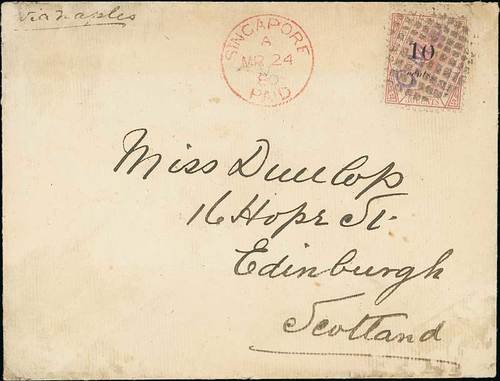 via Naples
SINGAPORE
A
MR 24
80
PAID
10
Miss Dunlop
16 Hope St.
Edinburgh
Scotland